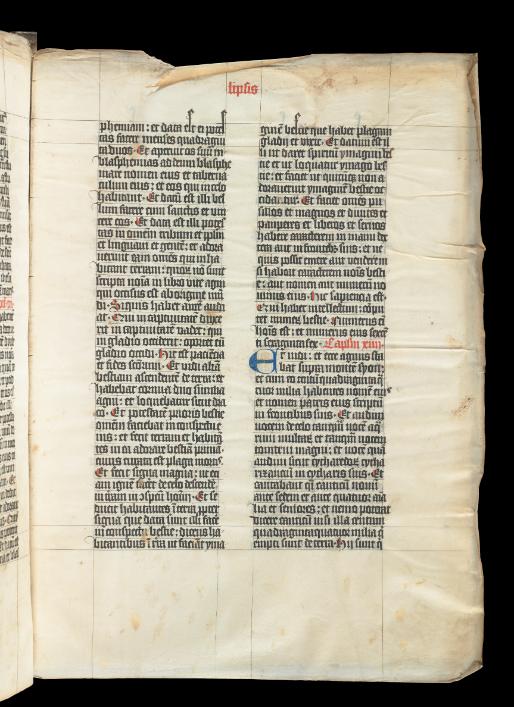 lipsis
phemiam : et data est ei potes
tas facere menses quadragin
ta duos · Et aperuit os suū in
blasphemias ad deum blasphe
mare nomen eius et taberna
culum eius : et eos qui in celo
habitant · Et datū est illi bel
lum facere cum sanctis et vin
cere eos · Et data est illi potes
tas in omnem tribum et pplm
et linguam et gentē : et adora
uerunt eam omēs qui inha
bitant terram : quorꝝ nō sunt
scripta noīa in libro vite agni
qui occisus est ab origine mūdi
Siquis habet aurē audi
at · Qui in captiuitatē duxe
rit in captiuitatē vadet : qui
in gladio occiderit : oportet eū
gladio occidi · Hic est paciētia
et fides sctōrum · Et vidi aliā
bestiam ascendentē de terra : et
habebat cornua duo similia
agni : et loquebatur sicut dra
co · Et potestatē prioris bestie
omnem faciebat in conspectu e
ius : et fecit terram et habitātes
in ea adorare bestiā primā
cuius curata est plaga mortis
Et fecit signa magna : ut eci
am ignē faceret de celo descendē
in terrā in conspectu hoīm · Et se
ducit habitantes ī terra propter
signa que data sunt illi facere
in conspectu bestie : dicens ha
bitantibus ī terra ut faciāt yma
ginē bestie que habet plagam
gladij et vixit · Et datum est il
li ut daret spiritū ymagini bes
tie et ut loquatur ymago bes
tie : et faciat ut quicūqꝫ non a
dorauerint ymaginē bestie oc
cidantur · Et faciet omēs pu
sillos et magnos et diuites et
pauperes et liberos et seruos
habere caracterem in manu dex
tera aut in frontibus suis : et ne
quis possit emere aut vendere ni
si habeat caracterem nomē besti
e : aut nomen aut numerū no
minis eius · Hic sapiencia est ·
Qui habet intellectum : cōpu
tet numerū bestie · Numerus em
hoīs est : et numerus eius sexcē
ti sexaginta sex · Capłm xiiij
Et vidi : et ecce agnus sta
bat supra montē syon :
et cum eo centū quadragintaqt
tuor milia habentes nomē eius
et nomen patris eius scriptū
in frontibus suis · Et audiui
vocem de celo tanquā vocē aqꝫ
rum multarꝝ et tanquā vocem
tonitrui magni : et vocē quā
audiui sicut cytharedorꝝ cytha
rizantiū in cytharis suis · Et
cantabant qsi canticū nouū
ante sedem et ante quatuor aīa
lia et seniores : et nemo poterat
dicere canticū nisi illa centum
quadragintaquatuor milia qui
empti sunt de terra · Hij sunt q